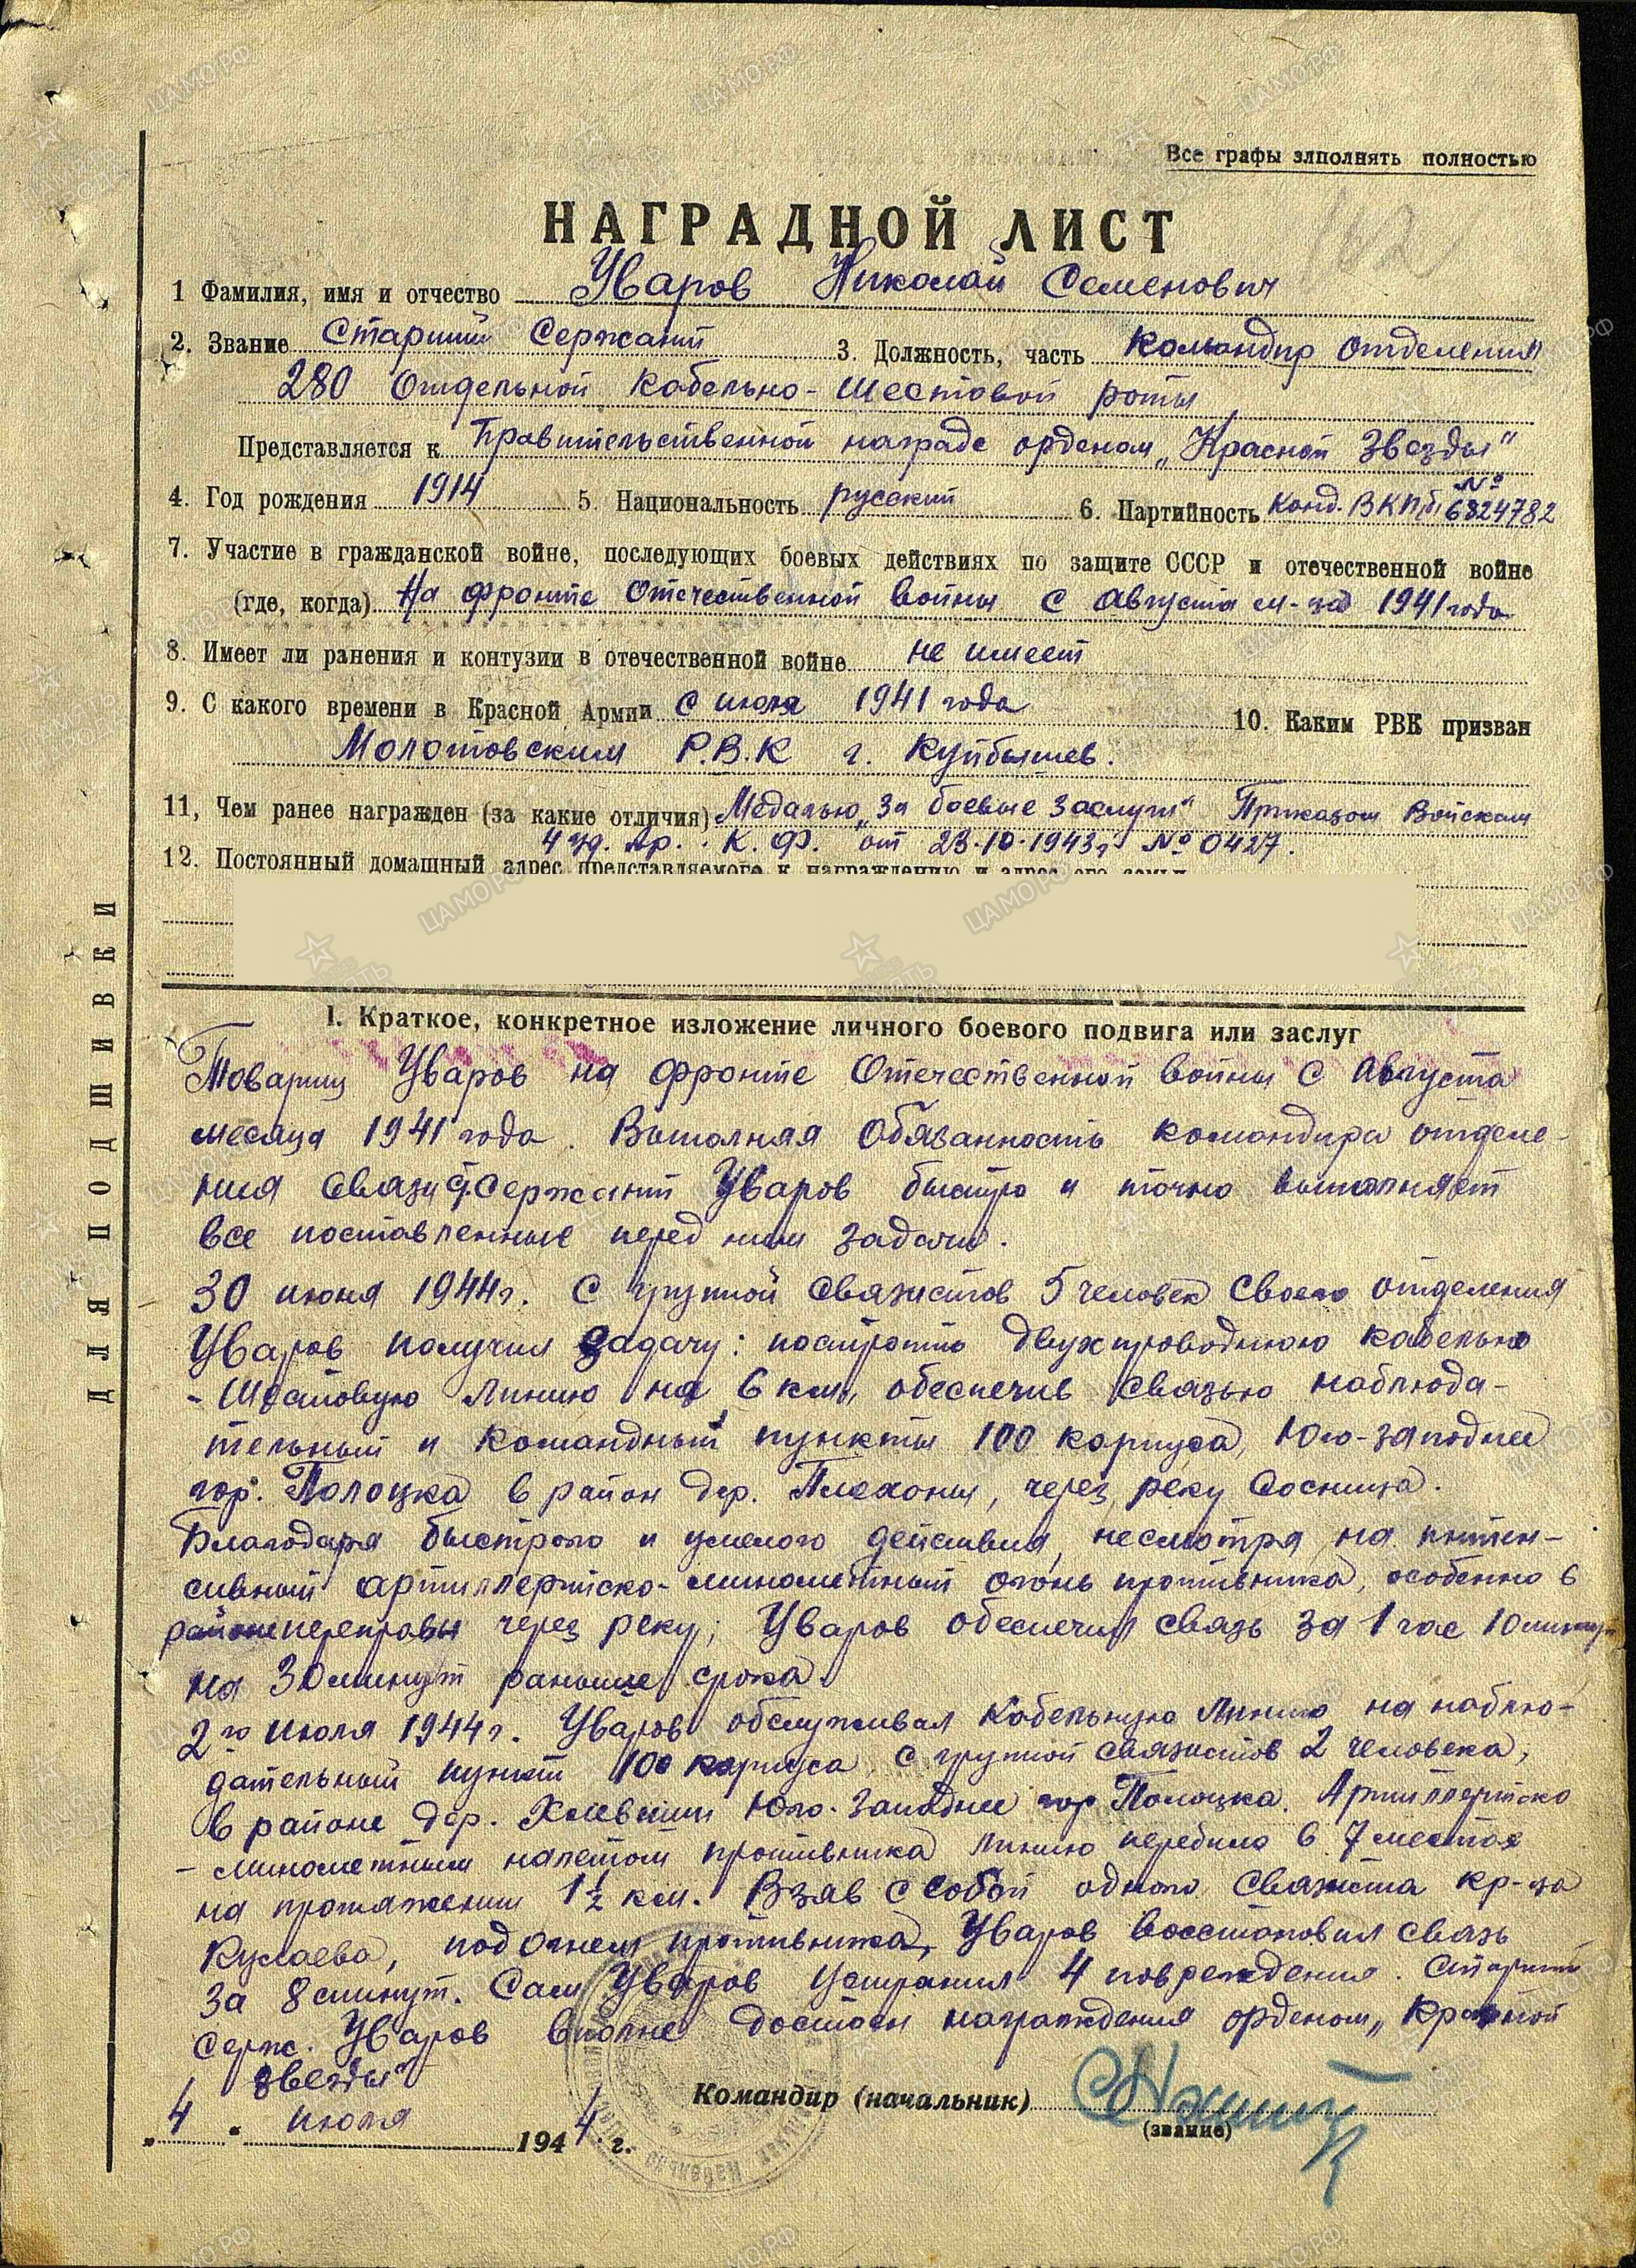 Все графы зlполнять полностью
НАГРАДНОЙ ЛИСТ
1 Фамилия, имя и отчество Уваров Николай Семенович
2. Звание Старший Сержант 3. Должность, часть Командир отделения
280 Отдельной Кабельно-Шестовой роты
Представляется к Правительственной награде орденом „Красной Звезды"
4. Год рождения 1914 5 Национальность русский 6. Партийность Канд. ВКП(б) № 6824782
7. Участие в гражданской войне, последующих боевых действиях по защите СССР и отечественной войне
(где, когда) На фронте Отечественной войны с августа м-ца 1941 года
8. Имеет ли ранения и контузии в отечественной войне не имеет
9. С какого времени в Красной Армии с июля 1941 года 10. Каким РВК призван
Молотовским Р.В.К г. Куйбышев.
11, Чем ранее награжден (за какие отличия) Медалью „За боевые заслуги" Приказом Войскам
4 уд. Ар. К. Ф. от 23.10.1943г № 0427.
12. Постоянный домашный адрес представляемого к награждению и адрес его семьи
ДЛЯ ПОДШИВКИ
I. Краткое, конкретное изложение личного боевого подвига или заслуг
Товарищ Уваров на фронте Отечественной войны с Августа
месяца 1941 года. Выполняя Обязанность командира отделе-
ния Связи Сержант Уваров быстро и точно выполняет
все поставленные перед ним задачи.
30 июня 1944г. С групой связистов 5 человек своего отделения
Уваров получил задачу: построить двухпроводную кабельно
- Шестовую линию на 6 км, обеспечив связью наблюда-
тельный и командный пункты 100 корпуса, Юго-западнее
гор. Полоцка в район дер. Плехоны, через реку Сосница.
Благодаря быстрого и умелого действия, несмотря на интен-
сивный артиллерийско-минометный огонь противника, особенно в
районе переправы через реку; Уваров обеспечил связь за 1 час 10 минут
на 30 минут раньше срока.
2го июля 1944г. Уваров обслуживал Кабельную Линию на наблю-
дательный пункт 100 корпуса с групой связистов 2 человека,
в районе дер. Хлевищи Юго-Западнее гор Полоцка. Артиллерийско
- минометным налетом противника линию перебило в 7 местах
на протяжении 1½ км. Взяв с собой одного Связиста кр-ца
Кулаева, под огнем противника, Уваров восстановил связь
за 8 минут. Сам Уваров устранил 4 повреждения. Старший
Серж. Уваров вполне достоин награждения орденом „Красной
Звезды"
„ 4 " июля 1944 г.
Командир (начальник)
(звание)